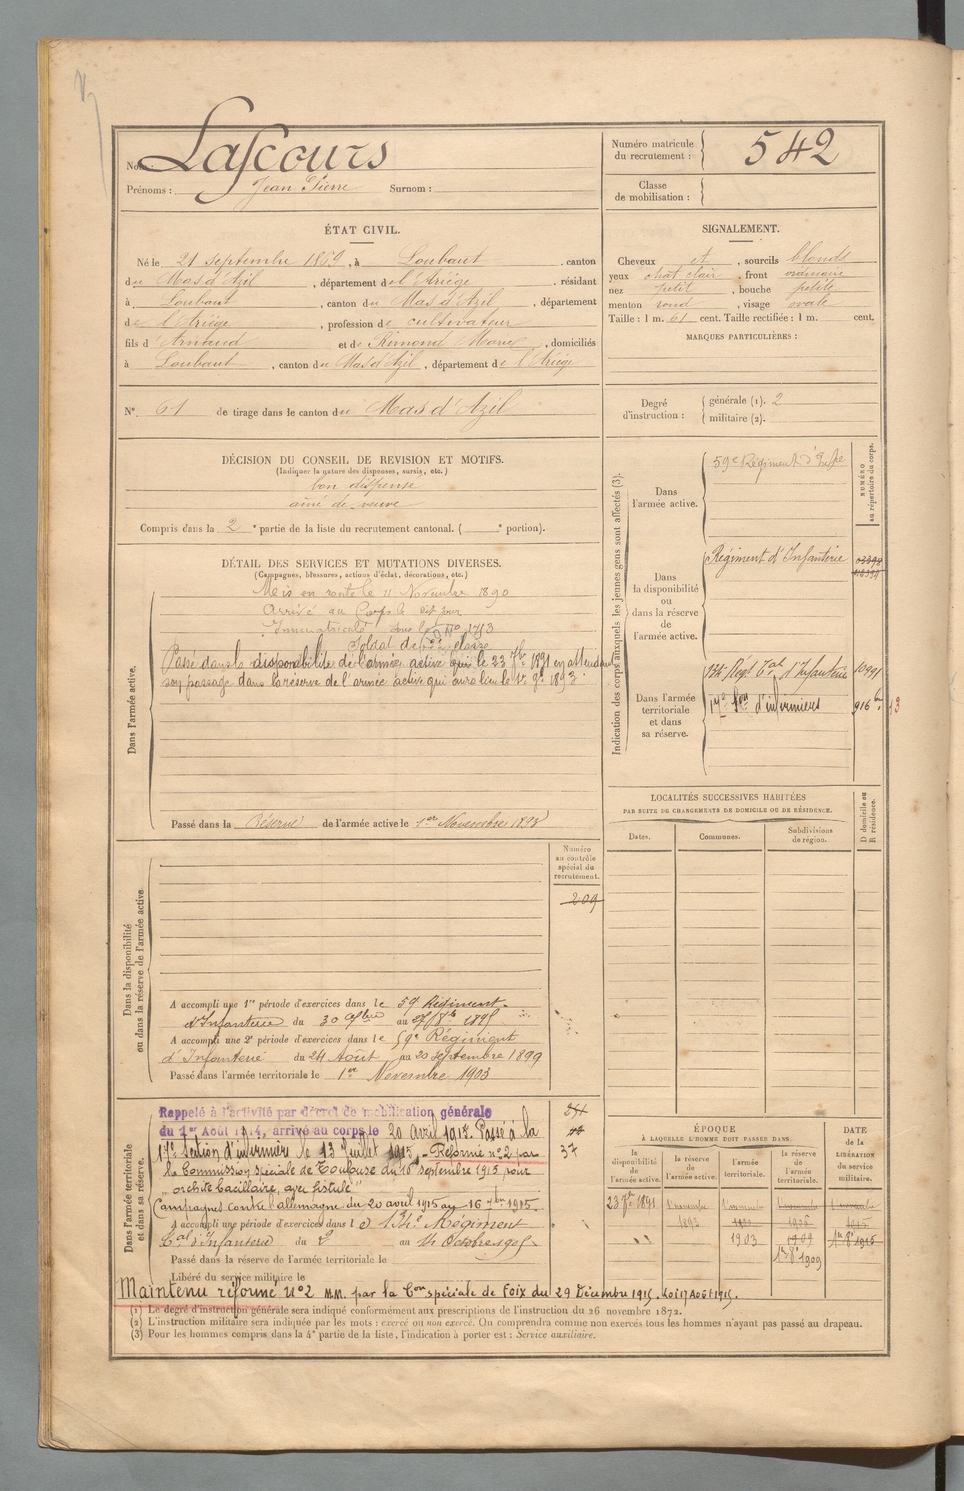 Nom : Lascours
Prénoms : Jean Pierre Surnom :
Numéro matricule du recrutement : 542
Classe de mobilisation :
ÉTAT CIVIL.
Né le 21 septembre 1869, à Loubaut, canton
du Mas d'Azil, département de l'Ariège, résidant
à Loubaut, canton du Mas d'Azil, département
de l'Ariège, profession de cultivateur
fils d'Arnaud et de Rémond Marie, domiciliés
à Loubaut, canton du Mas d'Azil, département de l'Ariège
N° 61 de tirage dans le canton du Mas d'Azil
SIGNALEMENT.
Cheveux et, sourcils blonds
yeux chat clair, front ordinaire
nez petit, bouche petite
menton rond, visage ovale
Taille : 1 m. 61 cent. Taille rectifiée : 1 m. cent.
MARQUES PARTICULIÈRES :
Degré d'instruction : générale (1). 2
militaire (2).
DÉCISION DU CONSEIL DE REVISION ET MOTIFS.
(Indiquer la nature des dispenses, sursis, etc.)
bon dispensé
aîné de veuve
Compris dans la 2e partie de la liste du recrutement cantonal. ( e portion).
DÉTAIL DES SERVICES ET MUTATIONS DIVERSES.
(Campagnes, blessures, actions d'éclat, décorations, etc.)
Dans l'armée active.
Mis en route le 11 Novembre 1890
Arrivé au Corps le dit jour
Immatriculé sous le No
Soldat de 2e classe
Passé dans la disponibilité de l'armée active le 23 7bre 1891 en attendant
son passage dans la réserve de l'armée active qui aura lieu le 1er 9bre 1893.
Passé dans la Réserve de l'armée active le 1er Novembre
Indication des corps auxquels les jeunes gens sont affectés (3).
NUMÉRO au répertoire du corps.
Dans l'armée active.
59e Régiment d'Infie
Dans la disponibilité ou dans la réserve de l'armée active.
Régiment d'Infanterie
Dans l'armée territoriale et dans sa réserve.
134e Régt Tal d'Infanterie
17e Son d'infirmiers 916
LOCALITÉS SUCCESSIVES HABITÉES
PAR SUITE DE CHANGEMENTS DE DOMICILE OU DE RÉSIDENCE.
Dates. Communes. Subdivisions de région.
D domicile ou R résidence.
Dans la disponibilité ou dans la réserve de l'armée active.
Numéro au contrôle spécial du recrutement.
209
A accompli une 1re période d'exercices dans le 59e Régiment
d'Infanterie du 30 au
A accompli une 2e période d'exercices dans le 59e Régiment
d'Infanterie du 24 Août au 20 septembre 1899
Passé dans l'armée territoriale le 1er Novembre 1903
Dans l'armée territoriale et dans sa réserve.
Rappelé à l'activité par décret de mobilisation générale
du 1er Août 1914, arrivé au corps le 20 avril 1915. Passé à la
17e Section d'infirmiers le 13 Juillet 1915. - Réformé no 2 par
la Commission spéciale de Toulouse du septembre 1915 pour
"orchite bacillaire, avec fistule"
Campagnes contre l'allemagne du 20 avril 1915 au 16 7bre 1915.
37
A accompli une période d'exercices dans le 134e Régiment
Tal d'Infanterie du 2 au 14 Octobre
Passé dans la réserve de l'armée territoriale le
Libéré du service militaire le
Maintenu réformé no 2 par la Con spéciale de Foix du 29 Décembre 1915. Loi 17 Août 1915.
ÉPOQUE
À LAQUELLE L'HOMME DOIT PASSER DANS
la disponibilité de l'armée active. la réserve de l'armée active. l'armée territoriale. la réserve de l'armée territoriale.
DATE de la LIBÉRATION du service militaire.
23 7bre 1891 1 novembre 1893
1903 1909
(1) Le degré d'instruction générale sera indiqué conformément aux prescriptions de l'instruction du 26 novembre 1872.
(2) L'instruction militaire sera indiquée par les mots : exercé ou non exercé. On comprendra comme non exercés tous les hommes n'ayant pas passé au drapeau.
(3) Pour les hommes compris dans la 4e partie de la liste, l'indication à porter est : Service auxiliaire.